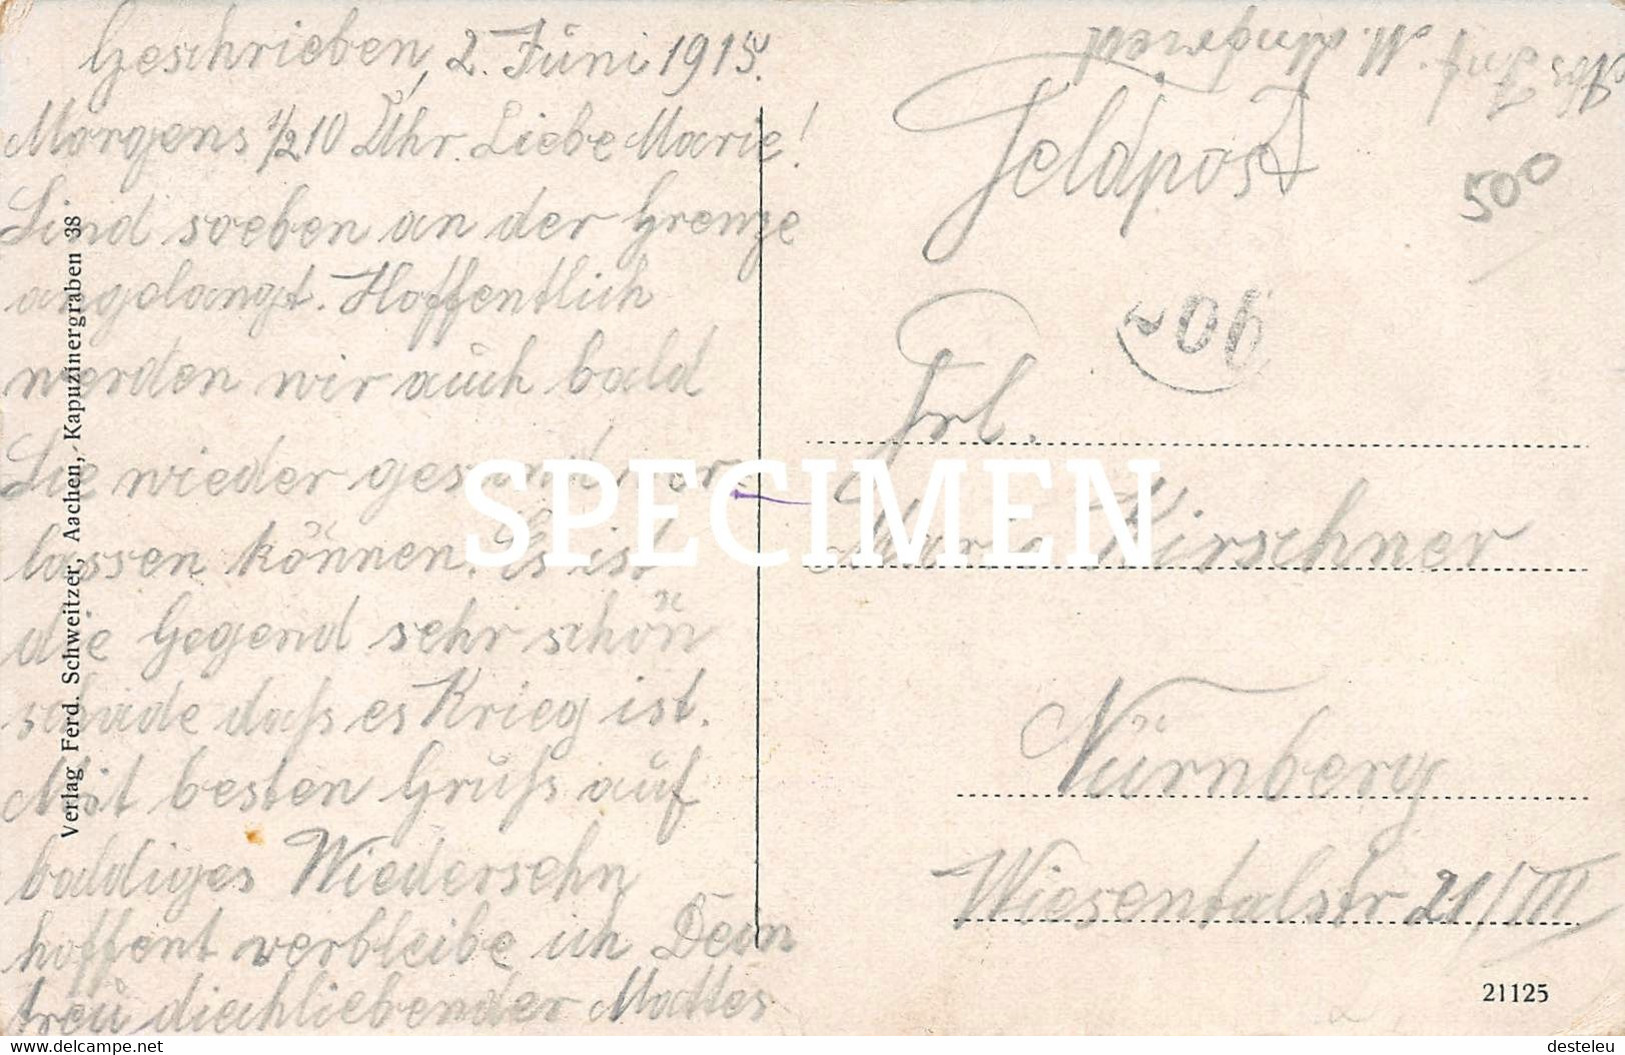 Geschrieben, 2. Juni 1915.
Morgens 1/2 10 Uhr. Liebe Marie!
Sind soeben an der Grenze
angelangt. Hoffentlich
werden wir auch bald
Sie wieder gesund ver
lassen können. Es ist
die Gegend sehr schön
schade daß es Krieg ist.
Mit besten Gruß auf
baldiges Wiedersehn
hoffent verbleibe ich Dein
treu dichliebender
Verlag Ferd. Schweitzer, Aachen, Kapuzinergraben 38
Feldpost
500
Frl.
Marie Kirschner
Nürnberg
Wiesentalstr 21/III
21125
SPECIMEN
delcampe.net
desteleu